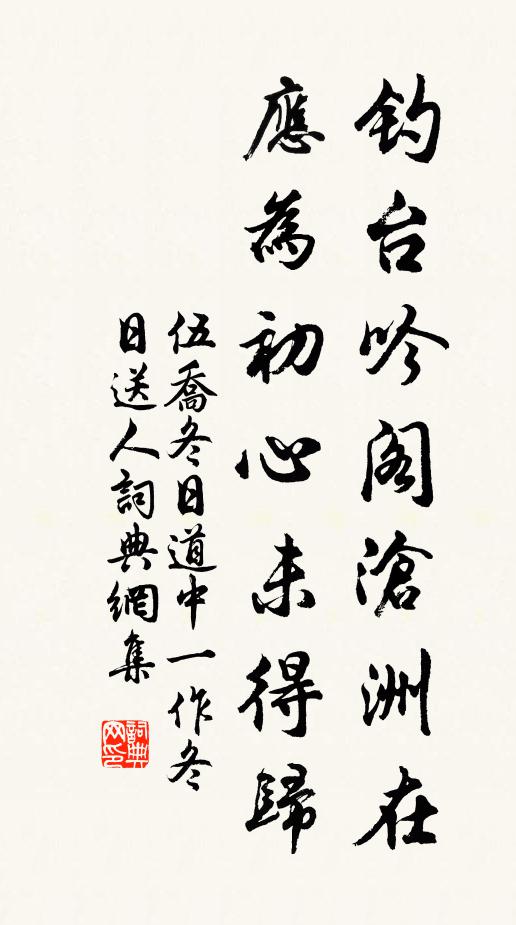 钓台吟阁滄洲在
應為初心未得歸
伍喬冬日道中一作冬
日送人詞典網集
詞典网印